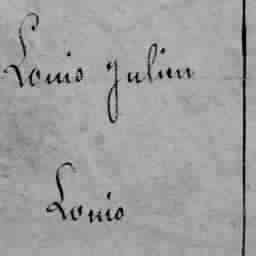 Louis Julien
Louis